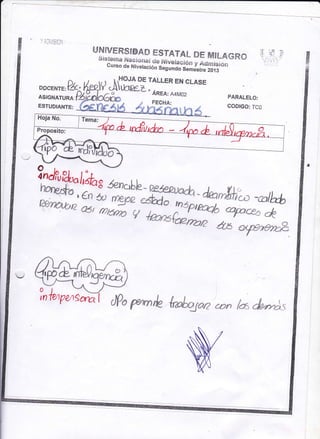 UNIVERSIDAD ESTATAL DE MILAGRO
Sistema Nacional de Nivelación y Admisión
Curso de Nivelación Segundo Semestre 2013
HOJA DE TALLER EN CLASE
DOCENTE: Psc. Kerly Alvarez - ÁREA: A4M02
ASIGNATURA Psicología FECHA: PARALELO:
ESTUDIANTE: GENESIS CODIGO: TC0
Hoja No. Tema:
Proposito: tipo de individuo - tipo de inteligencia.
tipo de individuo
individualistas sencible - reservada - dramático - callado
honesto, En su mejor estado inspirado capaces de
Renovar asi mismo y transformar sus
tipo de inteligencia
interpersonal Nos permite trabajar con los demás